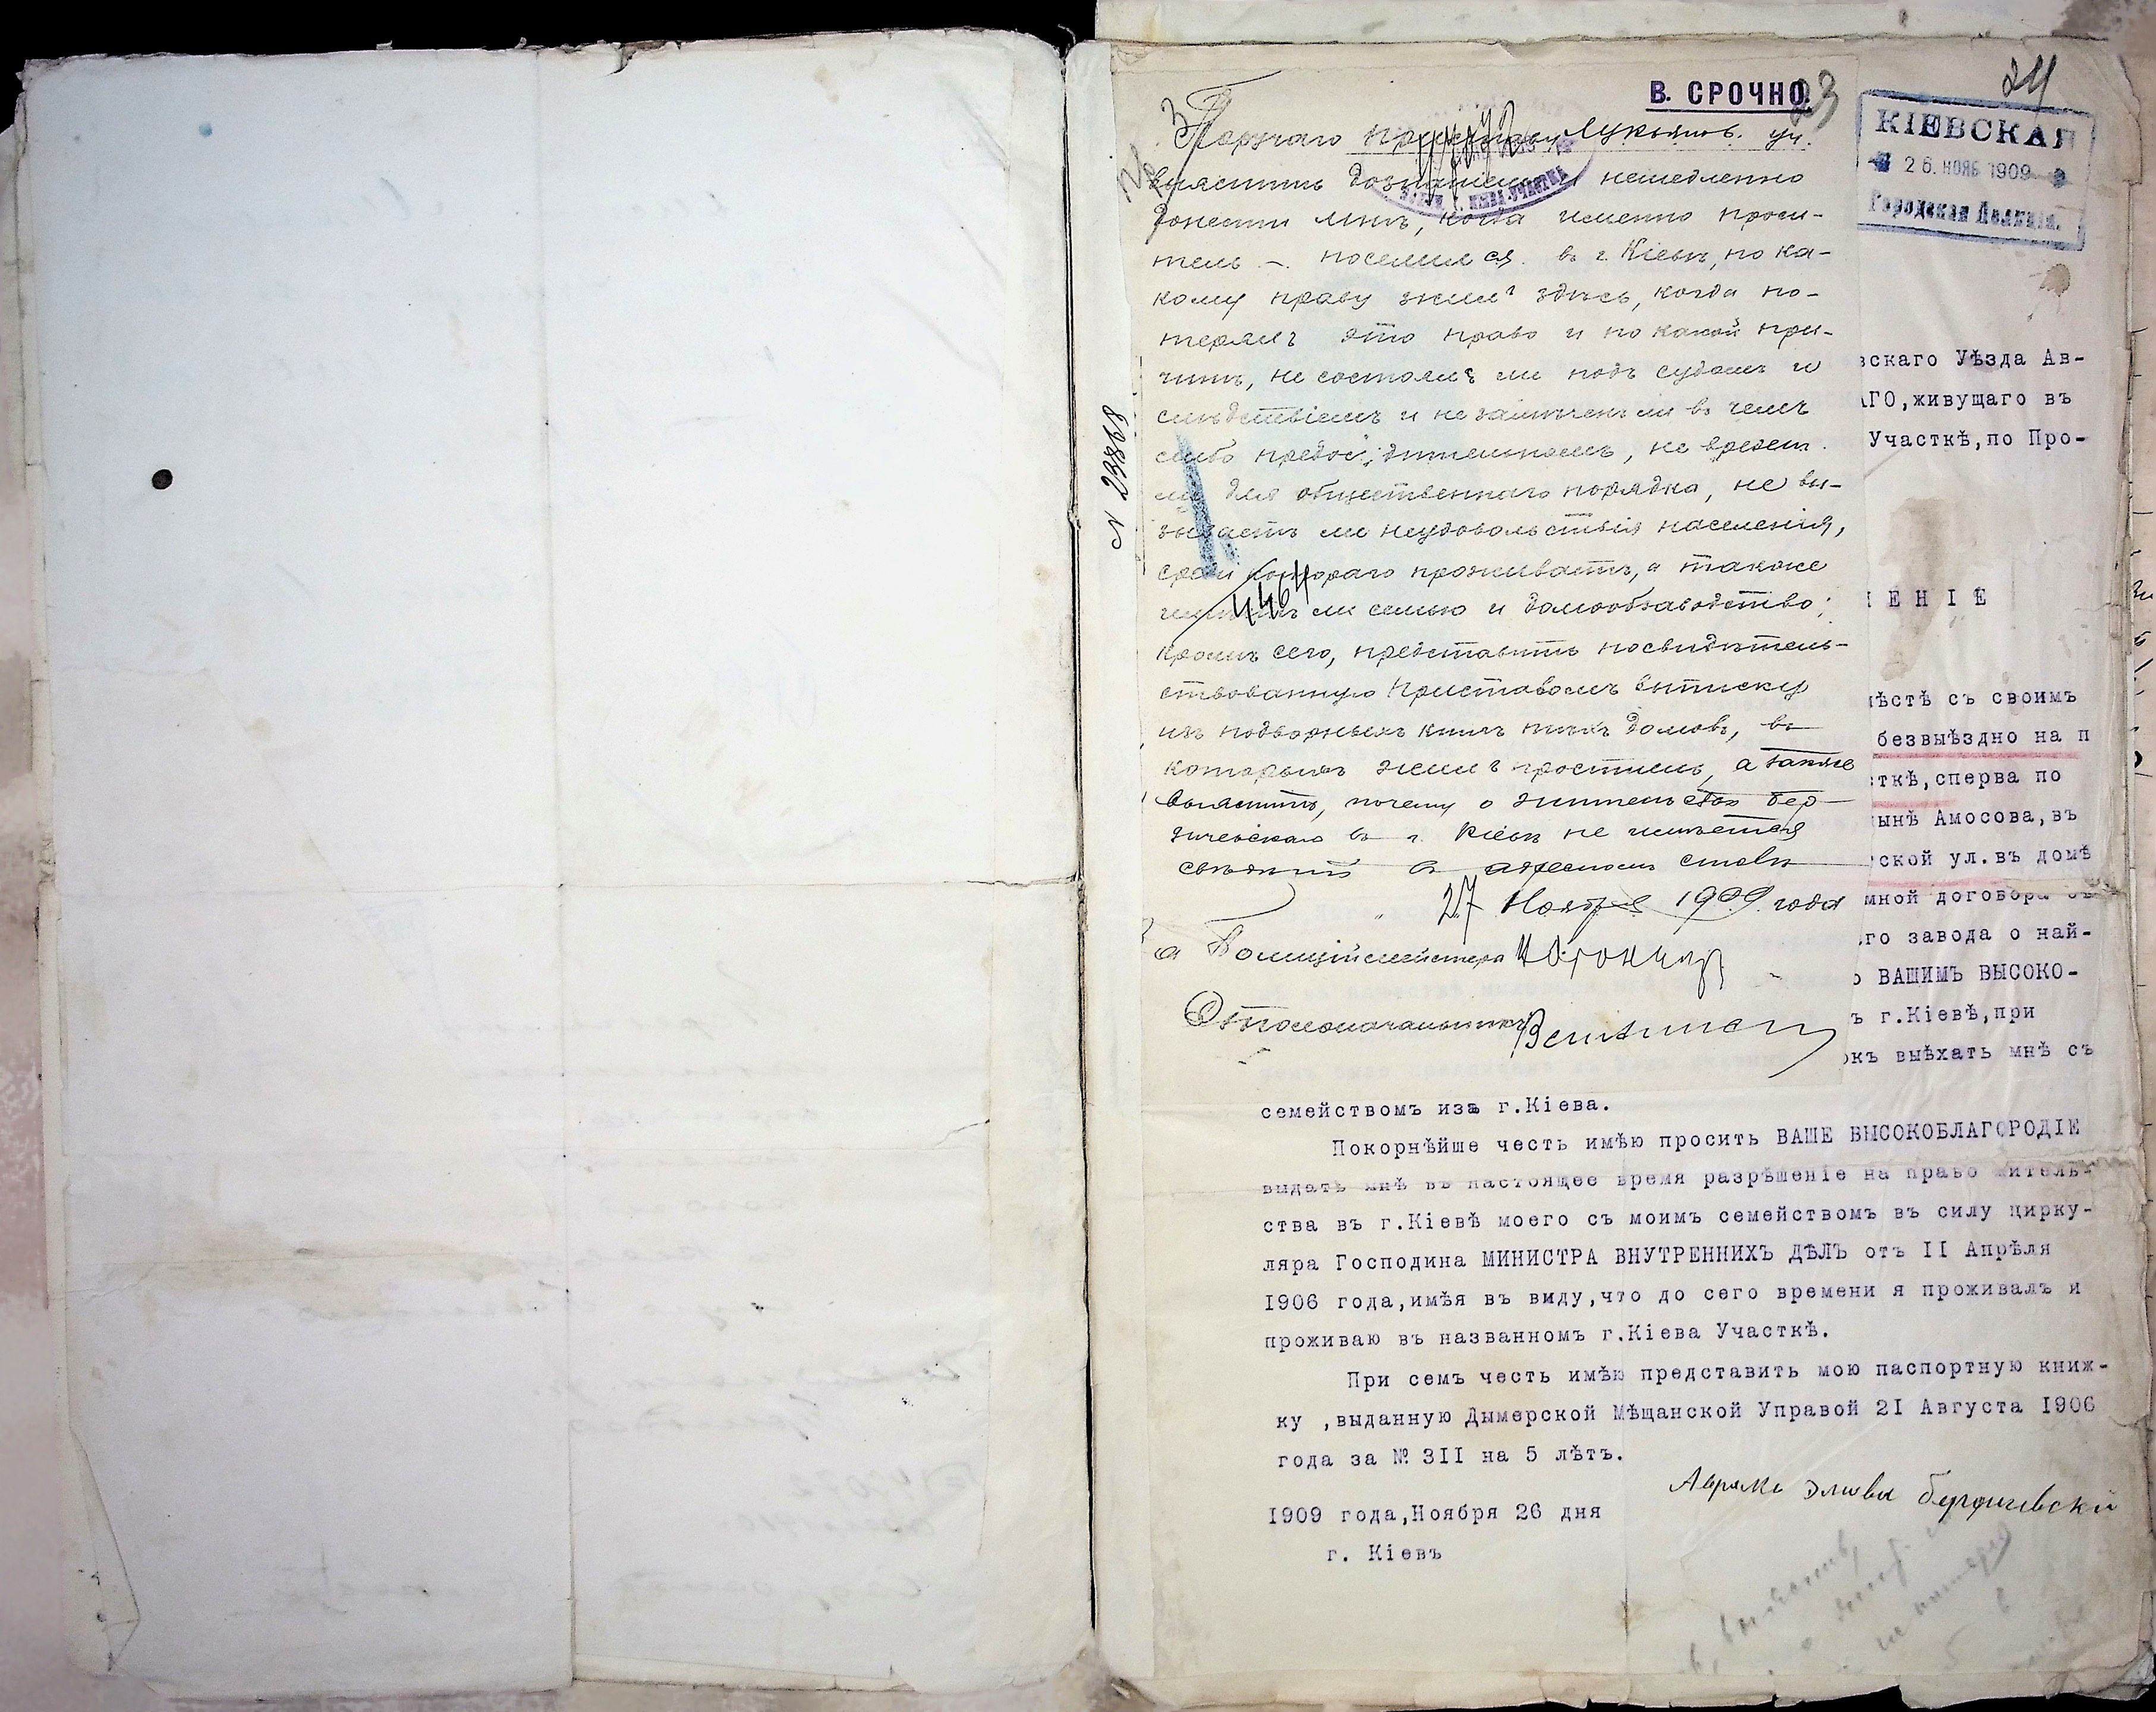 В. СРОЧНО.
23
24
КІЕВСКАЯ
26. НОЯБ 1909
Городская Полиція.
Поручаю Приставу Лукьянов. уч.
выяснить дознаніемъ и немедленно
донести мнѣ, когда именно проси-
тель поселился въ г. Кіевѣ, по ка-
кому праву жилъ здѣсь, когда по-
терялъ это право и по какой при-
чинѣ, не состоялъ ли подъ судомъ и
слѣдствіемъ и не замѣченъ ли въ чемъ
либо предосудительномъ, не вреденъ
ли для общественнаго порядка, не вы-
зываетъ ли неудовольствія населенія,
среди котораго проживаетъ, а также
имѣетъ ли семью и домообзаводство;
кромѣ сего, представить посвидѣтель-
ствованную Приставомъ выписку
изъ подворныхъ книгъ тѣхъ домовъ, въ
которыхъ жилъ проситель, а также
выяснить, почему о жительствѣ Бер-
дичевскаго въ г. Кіевѣ не имѣется
свѣдѣній въ адресномъ столѣ
27 Ноября 1909 года
За Полиціймейстера
Столоначальникъ
N 23868
4464
вскаго Уѣзда Ав-
АГО,живущаго въ
Участкѣ,по Про-
ЕНІЕ
мѣстѣ съ своимъ
безвыѣздно на п
сткѣ,сперва по
нынѣ Амосова,въ
ской ул.въ домѣ
мной договора съ
го завода о най-
о ВАШИМЪ ВЫСОКО-
ъ г.Кіевѣ,при
окъ выѣхать мнѣ съ
семействомъ изъ г.Кіева.
Покорнѣйше честь имѣю просить ВАШЕ ВЫСОКОБЛАГОРОДІЕ
выдать мнѣ въ настоящее время разрѣшеніе на право житель-
ства въ г.Кіевѣ моего съ моимъ семействомъ въ силу цирку-
ляра Господина МИНИСТРА ВНУТРЕННИХЪ ДѢЛЪ отъ II Апрѣля
I906 года,имѣя въ виду,что до сего времени я проживалъ и
проживаю въ названномъ г.Кіева Участкѣ.
При семъ честь имѣю представить мою паспортную книж-
ку ,выданную Дымерской Мѣщанской Управой 2I Августа I906
года за № 3II на 5 лѣтъ.
Авремъ Эліовъ Бердичевскій
I909 года,Ноября 26 дня
г. Кіевъ